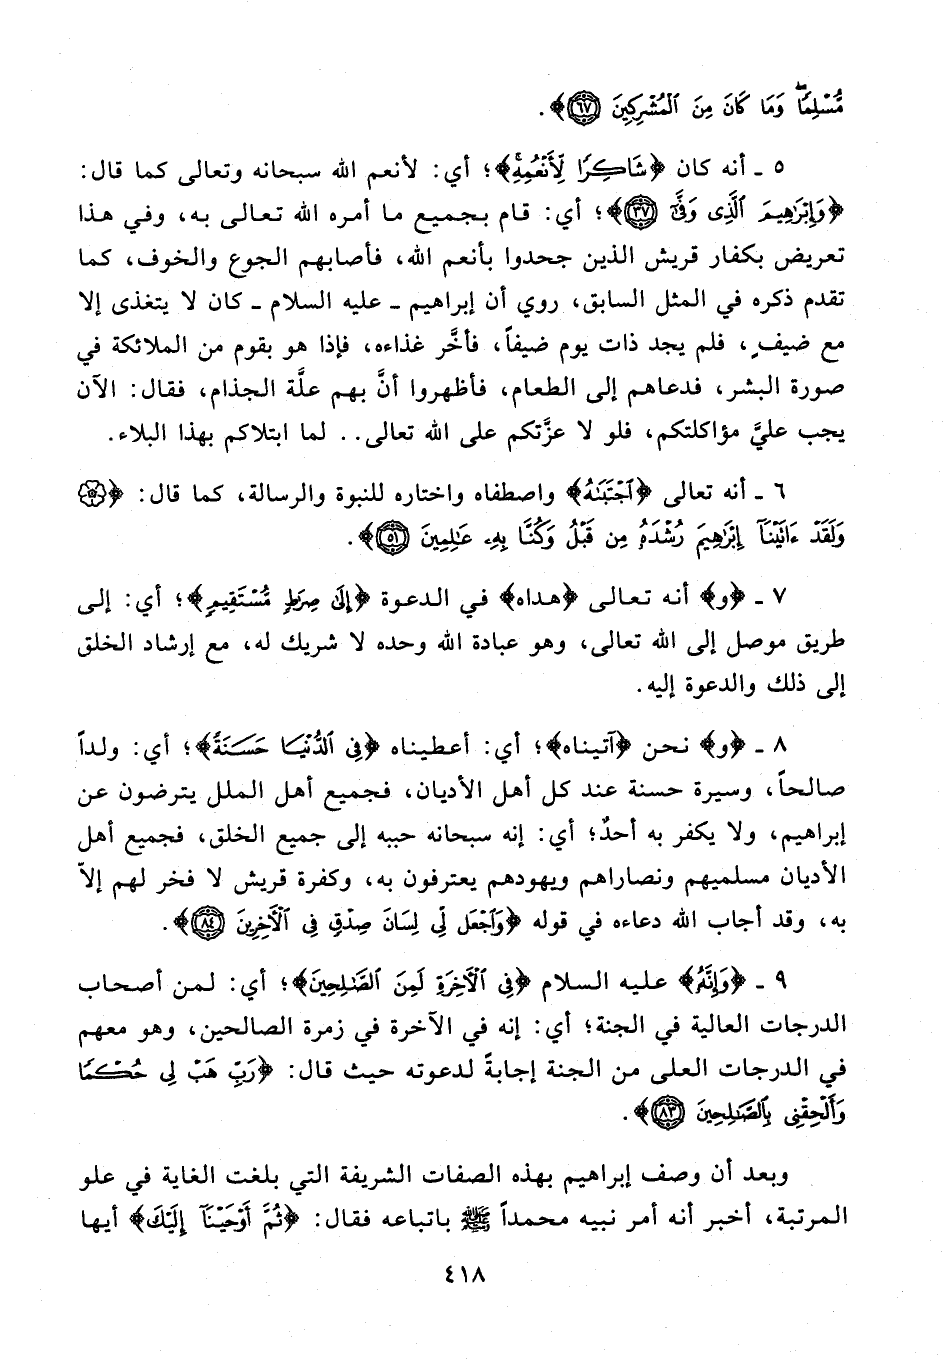 مُّسْلِمًا وَمَا كَانَ مِنَ ٱلْمُشْرِكِينَ ﴿٦٧﴾﴾.
٥ ـ أنه كان ﴿شَاكِرًا لِّأَنْعُمِهِ﴾؛ أي: لأنعم الله سبحانه وتعالى كما قال:
﴿وَإِبْرَٰهِيمَ ٱلَّذِى وَفَّىٰٓ ﴿٣٧﴾﴾؛ أي: قام بجميع ما أمره الله تعالى به، وفي هذا
تعريض بكفار قريش الذين جحدوا بأنعم الله، فأصابهم الجوع والخوف، كما
تقدم ذكره في المثل السابق، روي أن إبراهيم ـ عليه السلام ـ كان لا يتغذى إلا
مع ضيفٍ، فلم يجد ذات يوم ضيفاً، فأخَّر غذاءه، فإذا هو بقوم من الملائكة في
صورة البشر، فدعاهم إلى الطعام، فأظهروا أنَّ بهم علَّة الجذام، فقال: الآن
يجب عليَّ مؤاكلتكم، فلو لا عزَّتكم على الله تعالى.. لما ابتلاكم بهذا البلاء.
٦ ـ أنه تعالى ﴿ٱجْتَبَىٰهُ﴾ واصطفاه واختاره للنبوة والرسالة، كما قال: ﴿۞
وَلَقَدْ ءَاتَيْنَآ إِبْرَٰهِيمَ رُشْدَهُۥ مِن قَبْلُ وَكُنَّا بِهِۦ عَٰلِمِينَ ﴿٥١﴾﴾.
٧ ـ ﴿و﴾ أنه تعالى ﴿هداه﴾ في الدعوة ﴿إِلَىٰ صِرَٰطٍ مُّسْتَقِيمٍ﴾؛ أي: إلى
طريق موصل إلى الله تعالى، وهو عبادة الله وحده لا شريك له، مع إرشاد الخلق
إلى ذلك والدعوة إليه.
٨ ـ ﴿و﴾ نحن ﴿آتيناه﴾؛ أي: أعطيناه ﴿فِى ٱلدُّنْيَا حَسَنَةً﴾؛ أي: ولداً
صالحاً، وسيرة حسنة عند كل أهل الأديان، فجميع أهل الملل يترضون عن
إبراهيم، ولا يكفر به أحدٌ؛ أي: إنه سبحانه حببه إلى جميع الخلق، فجميع أهل
الأديان مسلميهم ونصاراهم ويهودهم يعترفون به، وكفرة قريش لا فخر لهم إلاّ
به، وقد أجاب الله دعاءه في قوله ﴿وَٱجْعَل لِّى لِسَانَ صِدْقٍ فِى ٱلْآخِرِينَ ﴿٨٤﴾﴾.
٩ ـ ﴿وَإِنَّهُۥ﴾ عليه السلام ﴿فِى ٱلْآخِرَةِ لَمِنَ ٱلصَّٰلِحِينَ﴾؛ أي: لمن أصحاب
الدرجات العالية في الجنة؛ أي: إنه في الآخرة في زمرة الصالحين، وهو معهم
في الدرجات العلى من الجنة إجابةً لدعوته حيث قال: ﴿رَبِّ هَبْ لِى حُكْمًا
وَأَلْحِقْنِى بِٱلصَّٰلِحِينَ ﴿٨٣﴾﴾.
وبعد أن وصف إبراهيم بهذه الصفات الشريفة التي بلغت الغاية في علو
المرتبة، أخبر أنه أمر نبيه محمداً ﷺ باتباعه فقال: ﴿ثُمَّ أَوْحَيْنَآ إِلَيْكَ﴾ أيها
٤١٨